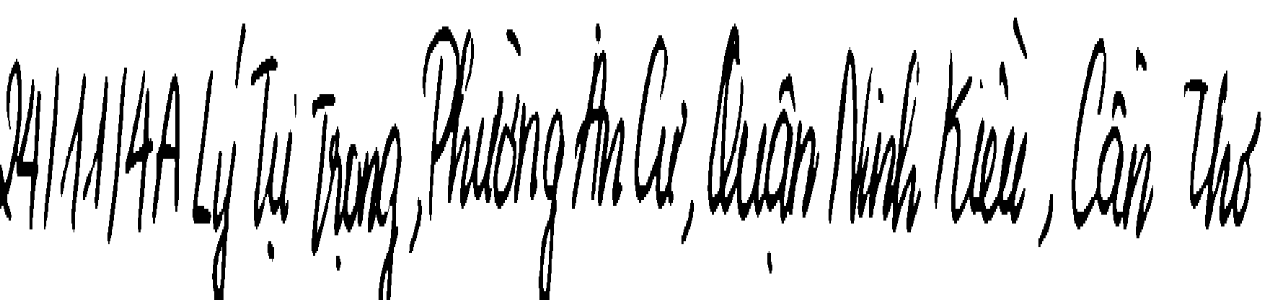 24/11/4A Lý Tự Trọng, Phường An Cư, Quận Ninh Kiều, Cần Thơ